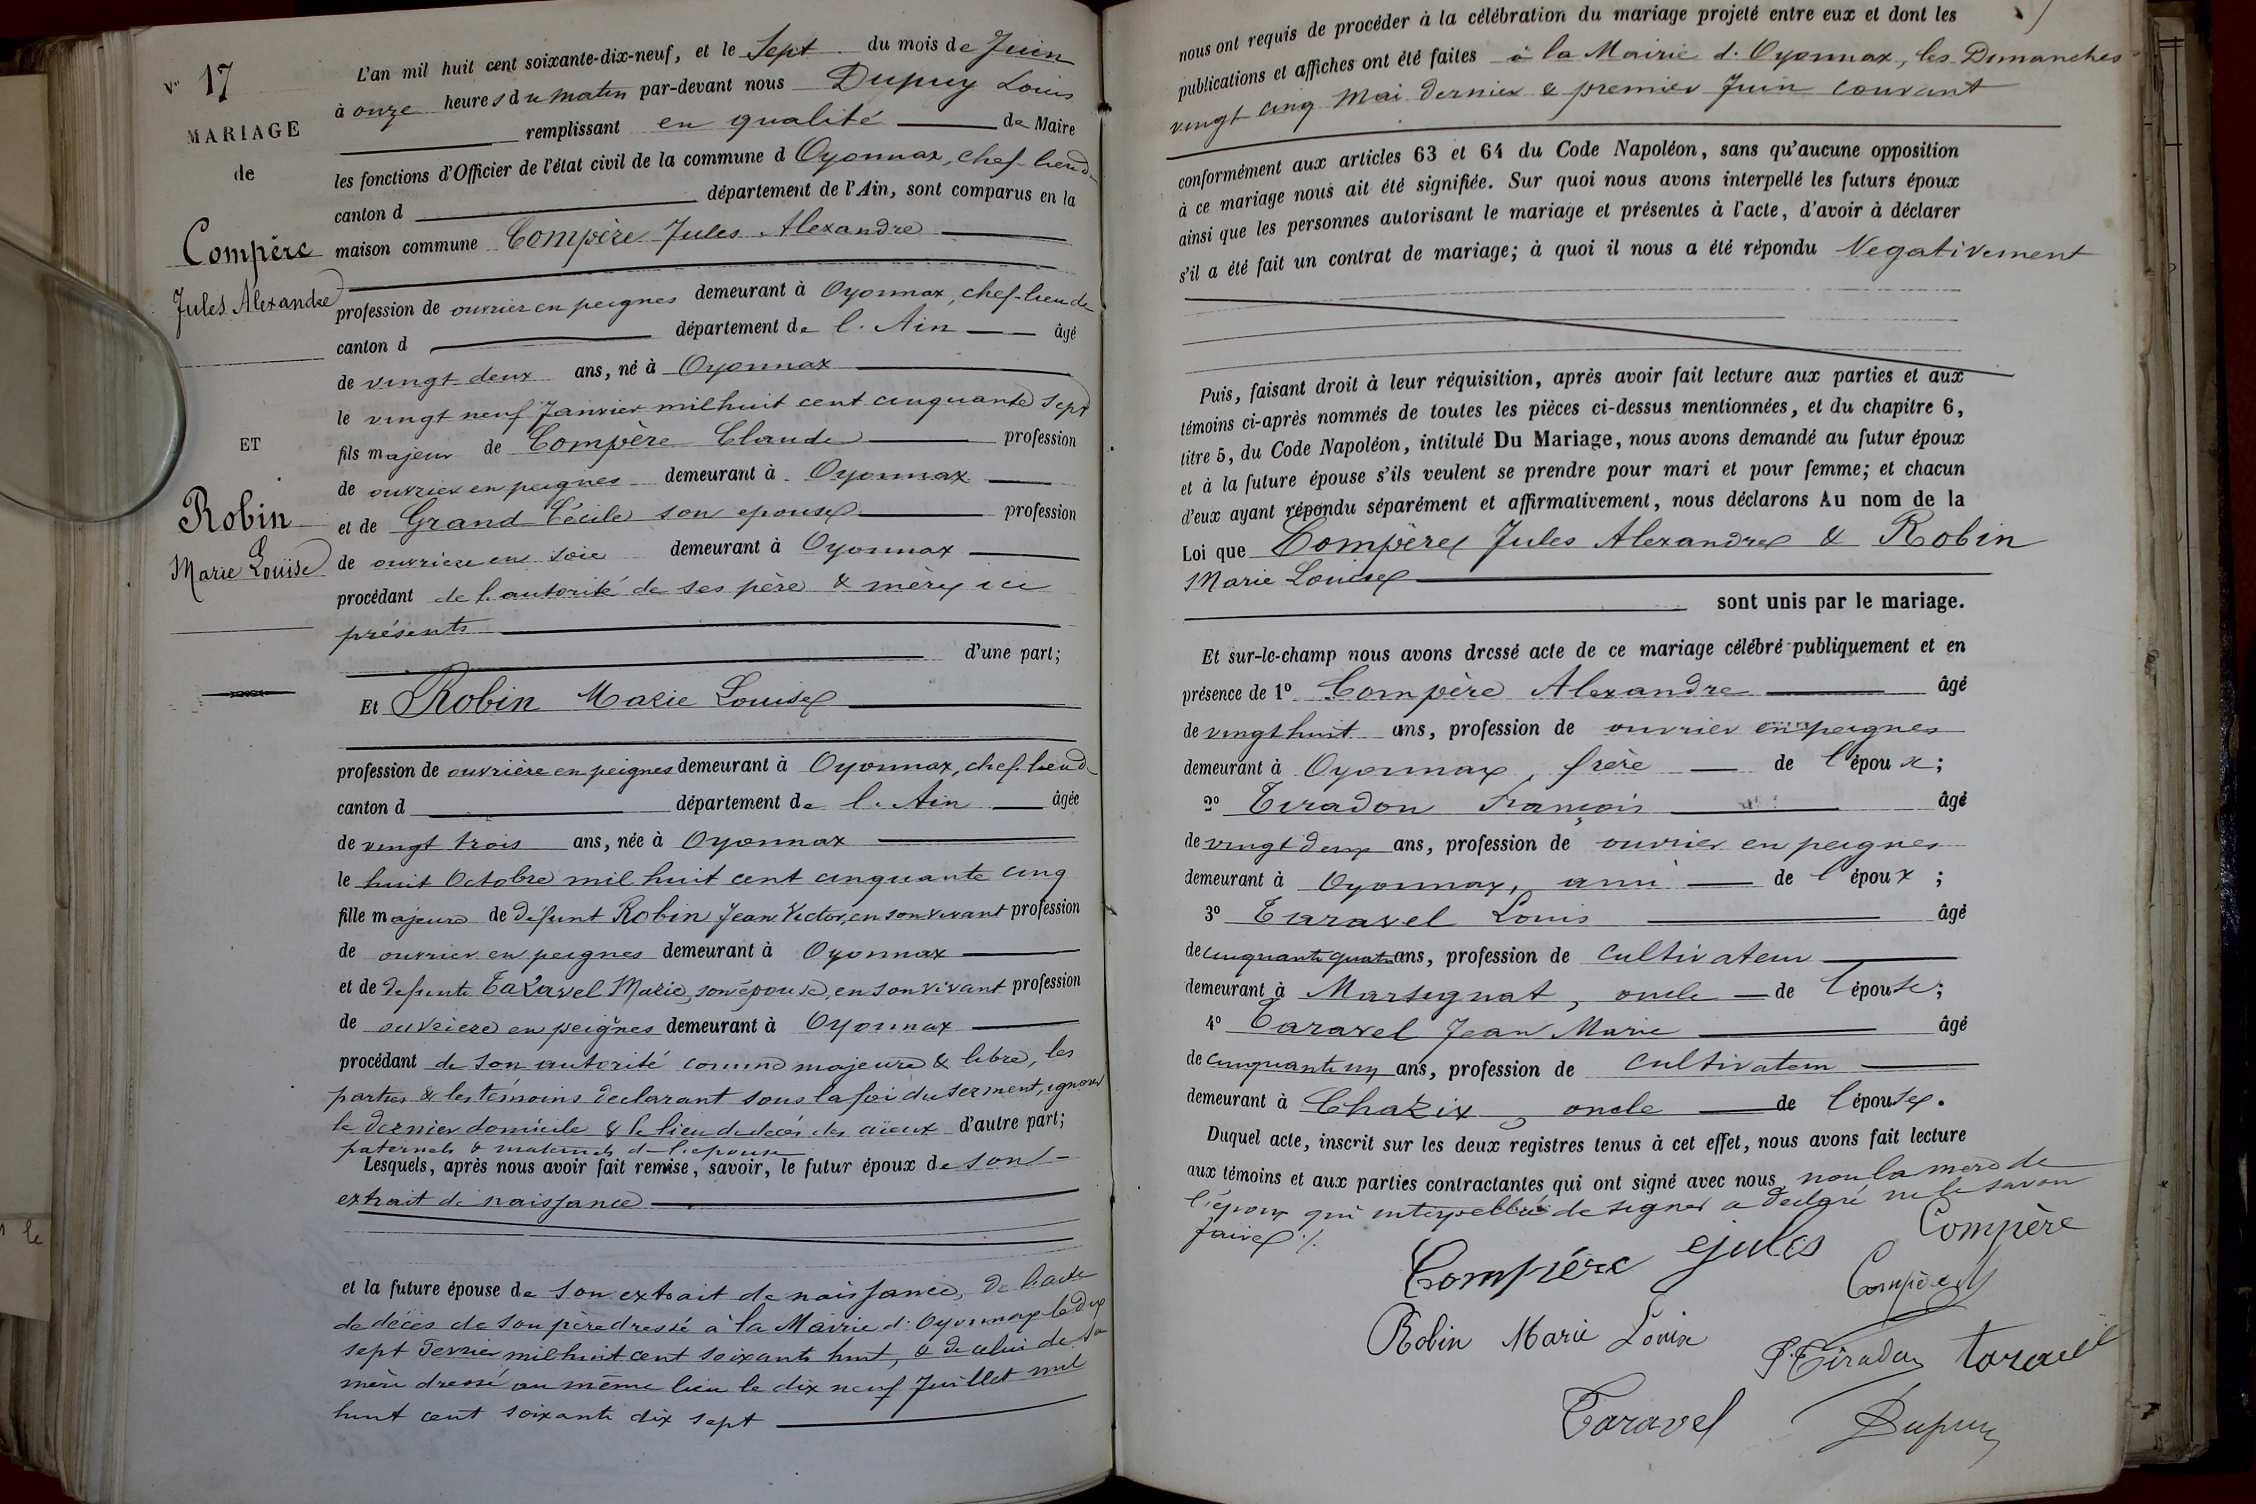 N° 17
MARIAGE
de
Compère
Jules Alexandre
ET
Robin
Marie Louise
L'an mil huit cent soixante-dix-neuf, et le Sept du mois de Juin
à onze heures du matin par-devant nous Dupuy Louis
remplissant en qualité de Maire
les fonctions d'Officier de l'état civil de la commune d Oyonnax, chef-lieu de
canton d département de l'Ain, sont comparus en la
maison commune Compère Jules Alexandre
profession de ouvrier en peignes demeurant à Oyonnax, chef-lieu de
canton d département de l'Ain âgé
de vingt deux ans, né à Oyonnax
le vingt neuf Janvier mil huit cent cinquante sept
fils majeur de Compère Claude profession
de ouvrier en peignes demeurant à Oyonnax
et de Grand Cécile son epouse profession
de ouvriere en soie demeurant à Oyonnax
procédant de l'autorité de ses père & mère ici
présents
d'une part;
Et Robin Marie Louise
profession de ouvrière en peignes demeurant à Oyonnax, chef-lieu de
canton d département de l'Ain âgée
de vingt trois ans, née à Oyonnax
le huit Octobre mil huit cent cinquante cinq
fille majeure de défunt Robin Jean Victor, en son vivant profession
de ouvrier en peignes demeurant à Oyonnax
et de défunte Taravel Marie, son épouse, en son vivant profession
de ouvriere en peignes demeurant à Oyonnax
procédant de son autorité comme majeure & libre, les
parties & les témoins declarant sous la foi du serment, ignorer
le dernier domicile & le lieu de décès des aïeux d'autre part;
paternels & maternels de l'epouse
Lesquels, après nous avoir fait remise, savoir, le futur époux de son
extrait de naissance
et la future épouse de son extrait de naissance, de l'acte
de décès de son père dressé à la Mairie d'Oyonnax le dix
sept Fevrier mil huit cent soixante huit, & de celui de sa
mère dressé au même lieu le dix neuf Juillet mil
huit cent soixante dix sept
nous ont requis de procéder à la célébration du mariage projeté entre eux et dont les
publications et affiches ont été faites à la Mairie d'Oyonnax, les Dimanches
vingt cinq Mai dernier & premier Juin courant
conformément aux articles 63 et 64 du Code Napoléon, sans qu'aucune opposition
à ce mariage nous ait été signifiée. Sur quoi nous avons interpellé les futurs époux
ainsi que les personnes autorisant le mariage et présentes à l'acte, d'avoir à déclarer
s'il a été fait un contrat de mariage; à quoi il nous a été répondu Negativement
Puis, faisant droit à leur réquisition, après avoir fait lecture aux parties et aux
témoins ci-après nommés de toutes les pièces ci-dessus mentionnées, et du chapitre 6,
titre 5, du Code Napoléon, intitulé Du Mariage, nous avons demandé au futur époux
et à la future épouse s'ils veulent se prendre pour mari et pour femme; et chacun
d'eux ayant répondu séparément et affirmativement, nous déclarons Au nom de la
Loi que Compère Jules Alexandre & Robin
Marie Louise
sont unis par le mariage.
Et sur-le-champ nous avons dressé acte de ce mariage célébré publiquement et en
présence de 1° Compère Alexandre âgé
de vingt huit ans, profession de ouvrier en peignes
demeurant à Oyonnax, frère de l'époux;
2° Tiradon François âgé
de vingt deux ans, profession de ouvrier en peignes
demeurant à Oyonnax, ami de l'époux;
3° Taravel Louis âgé
de cinquante quatre ans, profession de cultivateur
demeurant à Marsegnat, oncle de l'épouse;
4° Taravel Jean Marie âgé
de cinquante un ans, profession de cultivateur
demeurant à Chazix, oncle de l'épouse.
Duquel acte, inscrit sur les deux registres tenus à cet effet, nous avons fait lecture
aux témoins et aux parties contractantes qui ont signé avec nous non la mère de
l'époux qui interpellée de signer a declaré ne le savoir
faire ./.
Compère Jules Compère
Compère
Robin Marie Louise F. Tiradon taravel
Taravel Dupuy